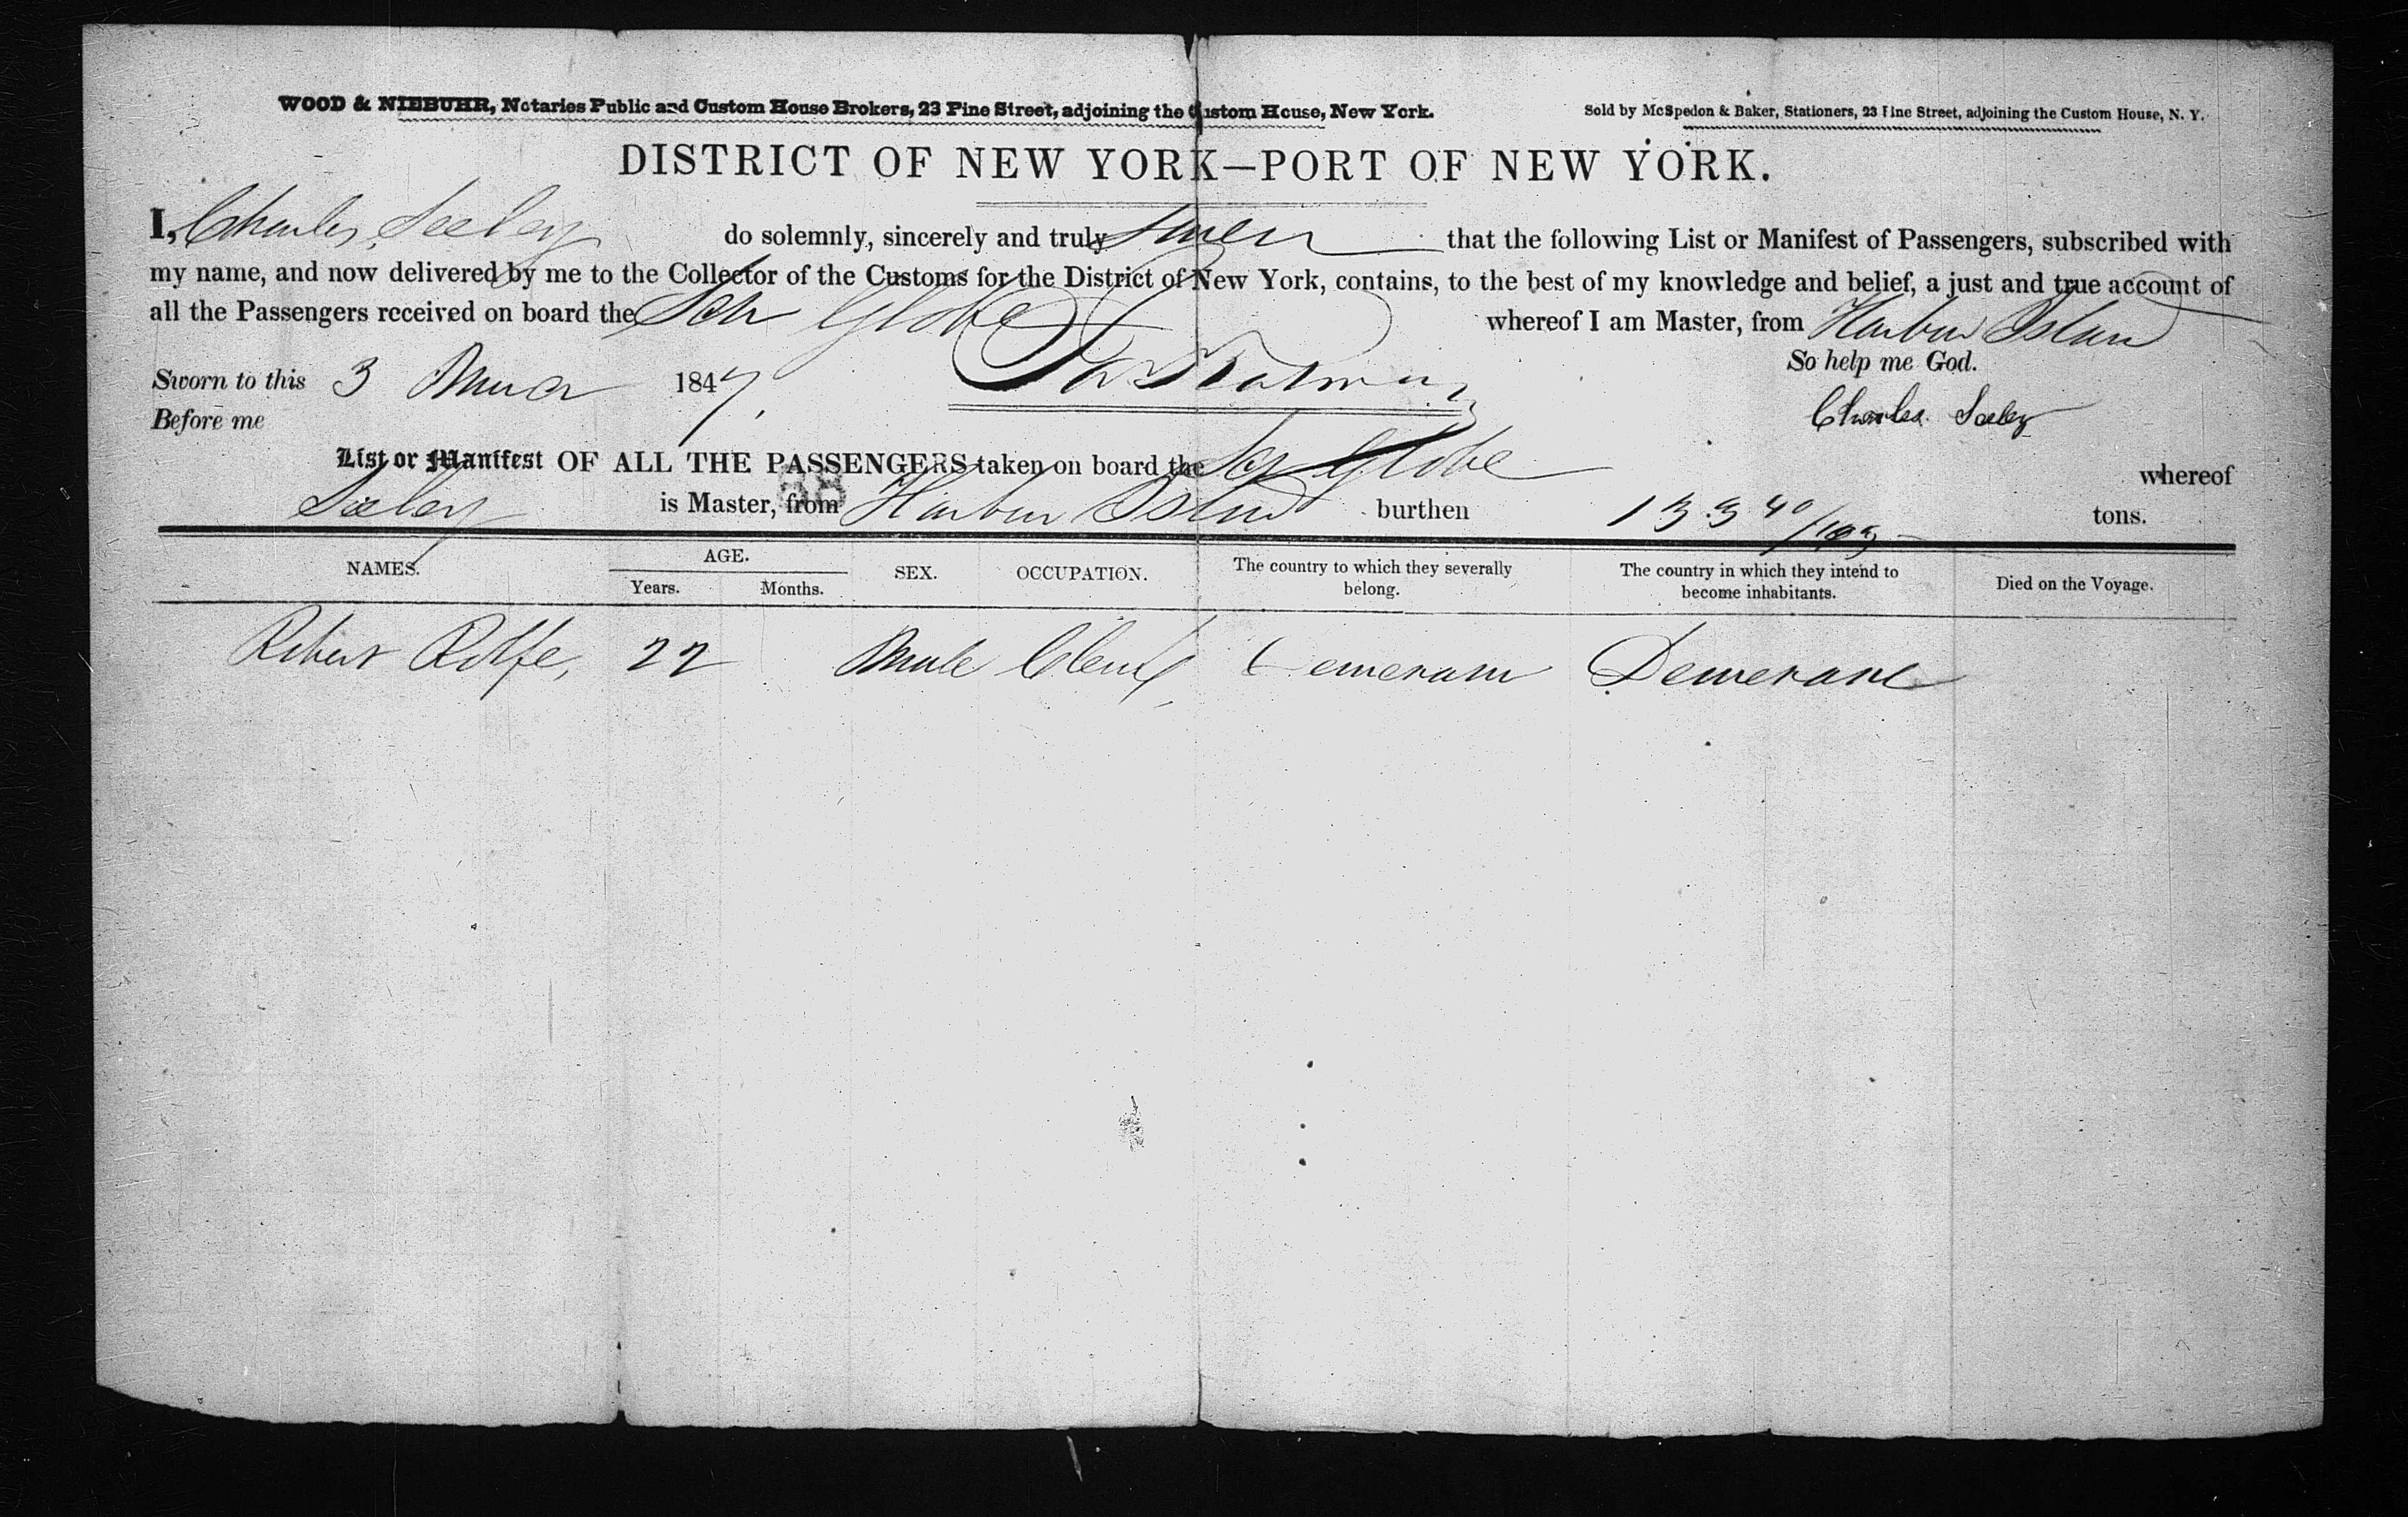 WOOD & NIEBUHR, Notaries Public and Custom House Brokers, 23 Pine Street, adjoining the Custom House, New York.
Sold by McSpedon & Baker, Stationers, 23 Pine Street, adjoining the Custom House, N. Y.
DISTRICT OF NEW YORK—PORT OF NEW YORK.
I, Charles Seeley do solemnly, sincerely and truly swear that the following List or Manifest of Passengers, subscribed with
my name, and now delivered by me to the Collector of the Customs for the District of New York, contains, to the best of my knowledge and belief, a just and true account of
all the Passengers received on board the Schr Globe whereof I am Master, from Harbur Island
So help me God.
Sworn to this 3 1847
Before me
Charles Seeley
List or Manifest OF ALL THE PASSENGERS taken on board the Scr Globe whereof
Seeley is Master, from Harbur Island burthen 133 40/95 tons.
NAMES. AGE. SEX. OCCUPATION. The country to which they severally belong. The country in which they intend to become inhabitants. Died on the Voyage.
Years. Months.
Robert Rolfe, 22 Male Clerk Demerara Demerara